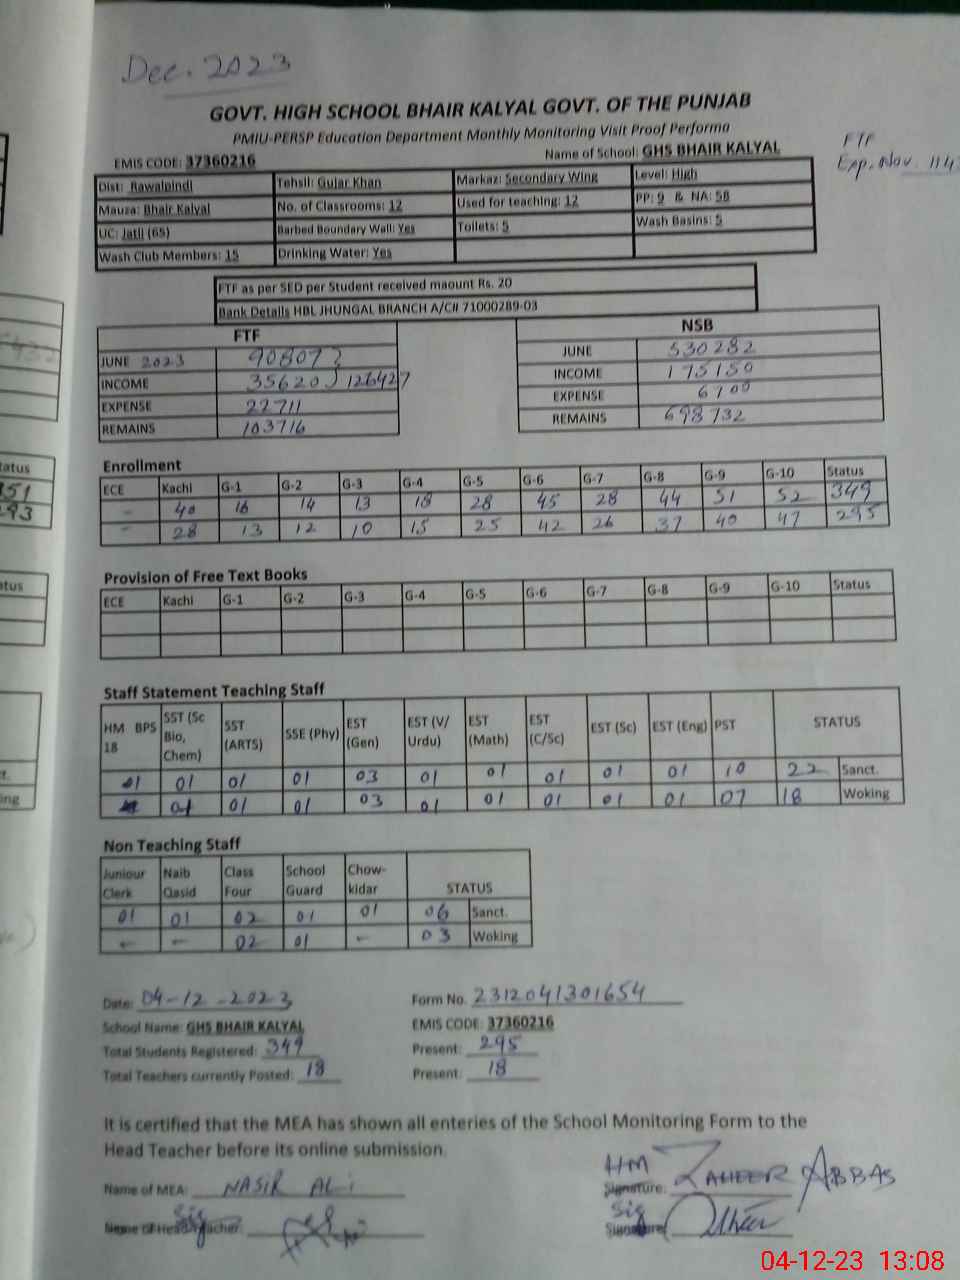 Dec. 2023
GOVT. HIGH SCHOOL BHAIR KALYAL GOVT. OF THE PUNJAB
PMIU-PERSP Education Department Monthly Monitoring Visit Proof Performa
FTF
Exp. Nov.
EMIS CODE: 37360216 Name of School: GHS BHAIR KALYAL
Dist: Rawalpindi Tehsil: Gujar Khan Markaz: Secondary Wing Level: High
Mauza: Bhair Kalyal No. of Classrooms: 12 Used for teaching: 12 PP: 9 & NA: 58
UC: Jatli (65) Barbed Boundary Wall: Yes Toilets: 5 Wash Basins: 5
Wash Club Members: 15 Drinking Water: Yes
FTF as per SED per Student received maount Rs. 20
Bank Details HBL JHUNGAL BRANCH A/C# 71000289-03
FTF NSB
JUNE 2023 90807 JUNE 530282
INCOME 35620 126427 INCOME 175150
EXPENSE 22711 EXPENSE 6700
REMAINS 103716 REMAINS 698732
Enrollment
ECE Kachi G-1 G-2 G-3 G-4 G-5 G-6 G-7 G-8 G-9 G-10 Status
- 40 16 14 13 18 28 45 28 44 51 52 349
- 28 13 12 10 15 25 42 26 37 40 47 295
Provision of Free Text Books
ECE Kachi G-1 G-2 G-3 G-4 G-5 G-6 G-7 G-8 G-9 G-10 Status
Staff Statement Teaching Staff
HM BPS 18 SST (Sc Bio, Chem) SST (ARTS) SSE (Phy) EST (Gen) EST (V/ Urdu) EST (Math) EST (C/Sc) EST (Sc) EST (Eng) PST STATUS
01 01 01 01 03 01 01 01 01 01 10 22 Sanct.
01 01 01 03 01 01 01 01 01 07 18 Woking
Non Teaching Staff
Juniour Clerk Naib Qasid Class Four School Guard Chow-kidar STATUS
01 01 02 01 01 06 Sanct.
- - 02 01 - 03 Woking
Date: 04-12-2023 Form No. 2312041301654
School Name: GHS BHAIR KALYAL EMIS CODE: 37360216
Total Students Registered: 349 Present: 295
Total Teachers currently Posted: 18 Present: 18
It is certified that the MEA has shown all enteries of the School Monitoring Form to the
Head Teacher before its online submission.
Name of MEA: NASIR ALI HM Signature: ZAHEER ABBAS
Name of Head Teacher: Sig Sig Signature
04-12-23 13:08